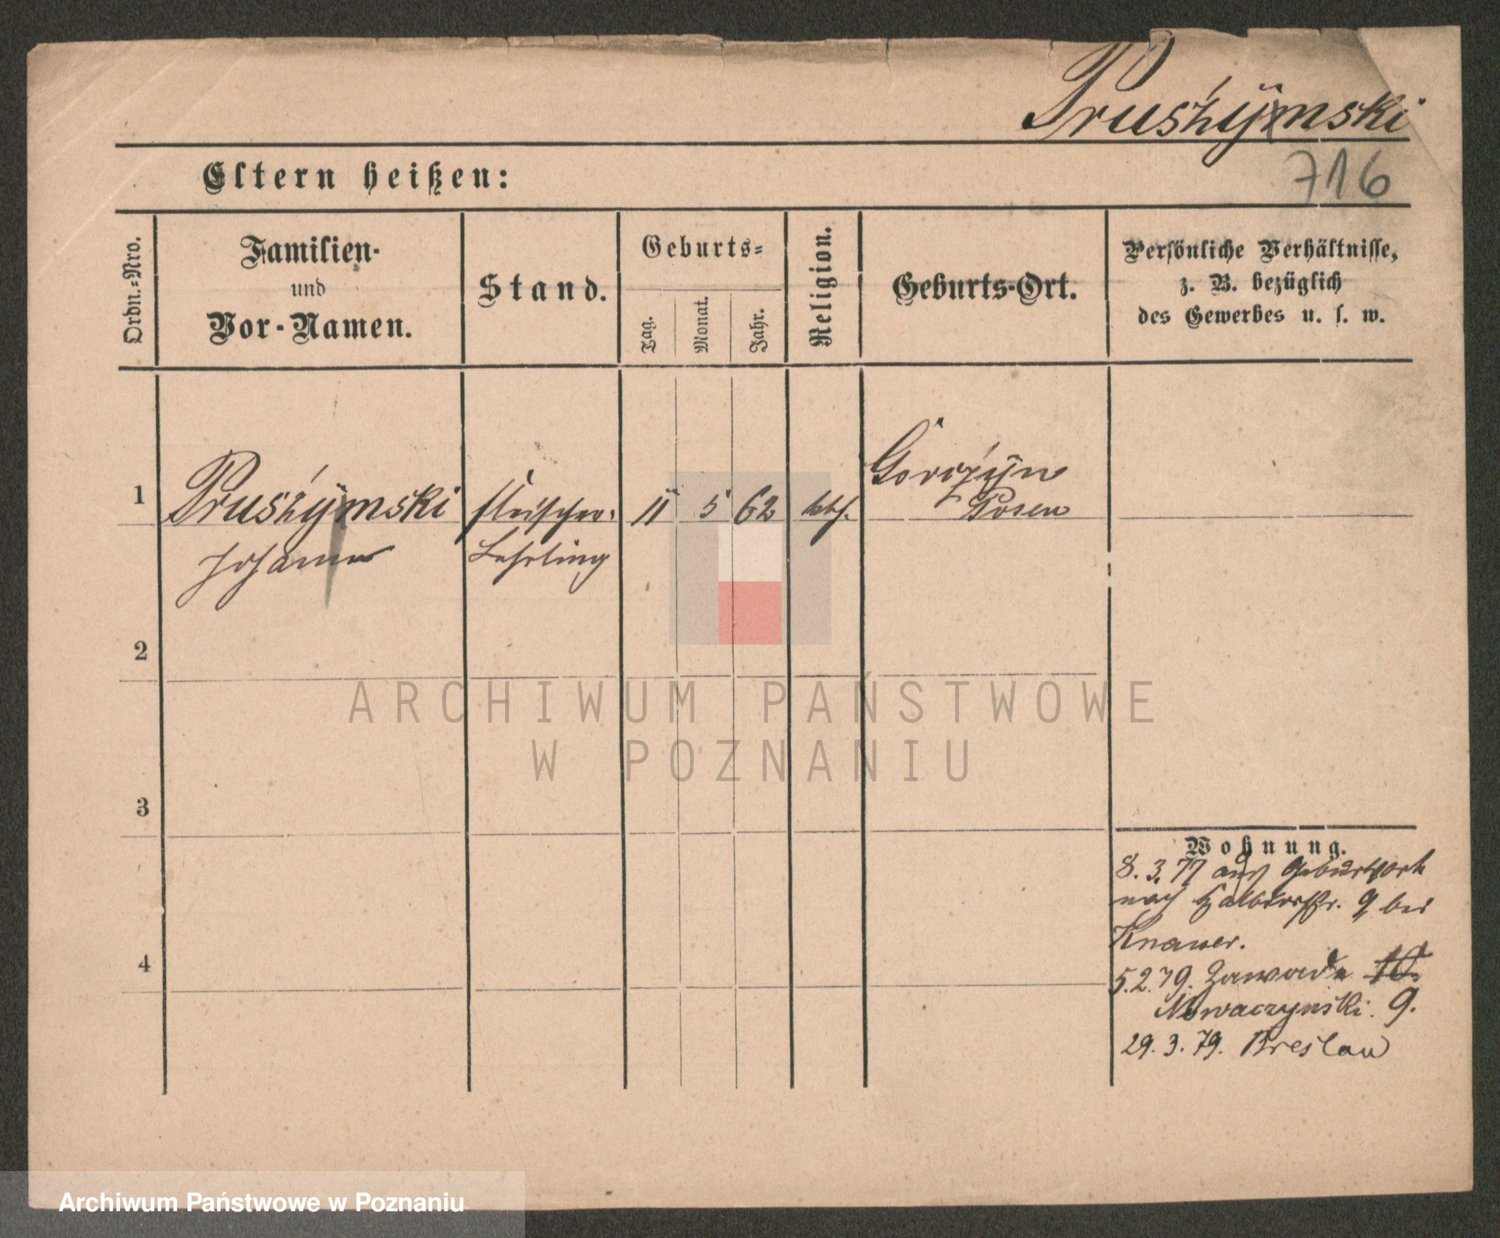 Prusźÿmski
716
Eltern heißen:
Ordn.-Nro.
Familien-
und
Vor-Namen.
Stand.
Geburts-
Tag.
Monat.
Jahr.
Religion.
Geburts-Ort.
Persönliche Verhältnisse,
z. B. bezüglich
des Gewerbes u. s. w.
1
Prusźÿmski
Johann
Fleischer-
Lehrling
11 5 62
kth.
Gorożÿn
Posen
2
ARCHIWUM PAŃSTWOWE
W POZNANIU
3
4
Wohnung.
8. 3. 77 aus Geburtsort
nach 9 bei
Knauer.
5.2.79. Zawade 10.
Nowaczynski. 9.
29. 3. 79. Breslau
Archiwum Państwowe w Poznaniu